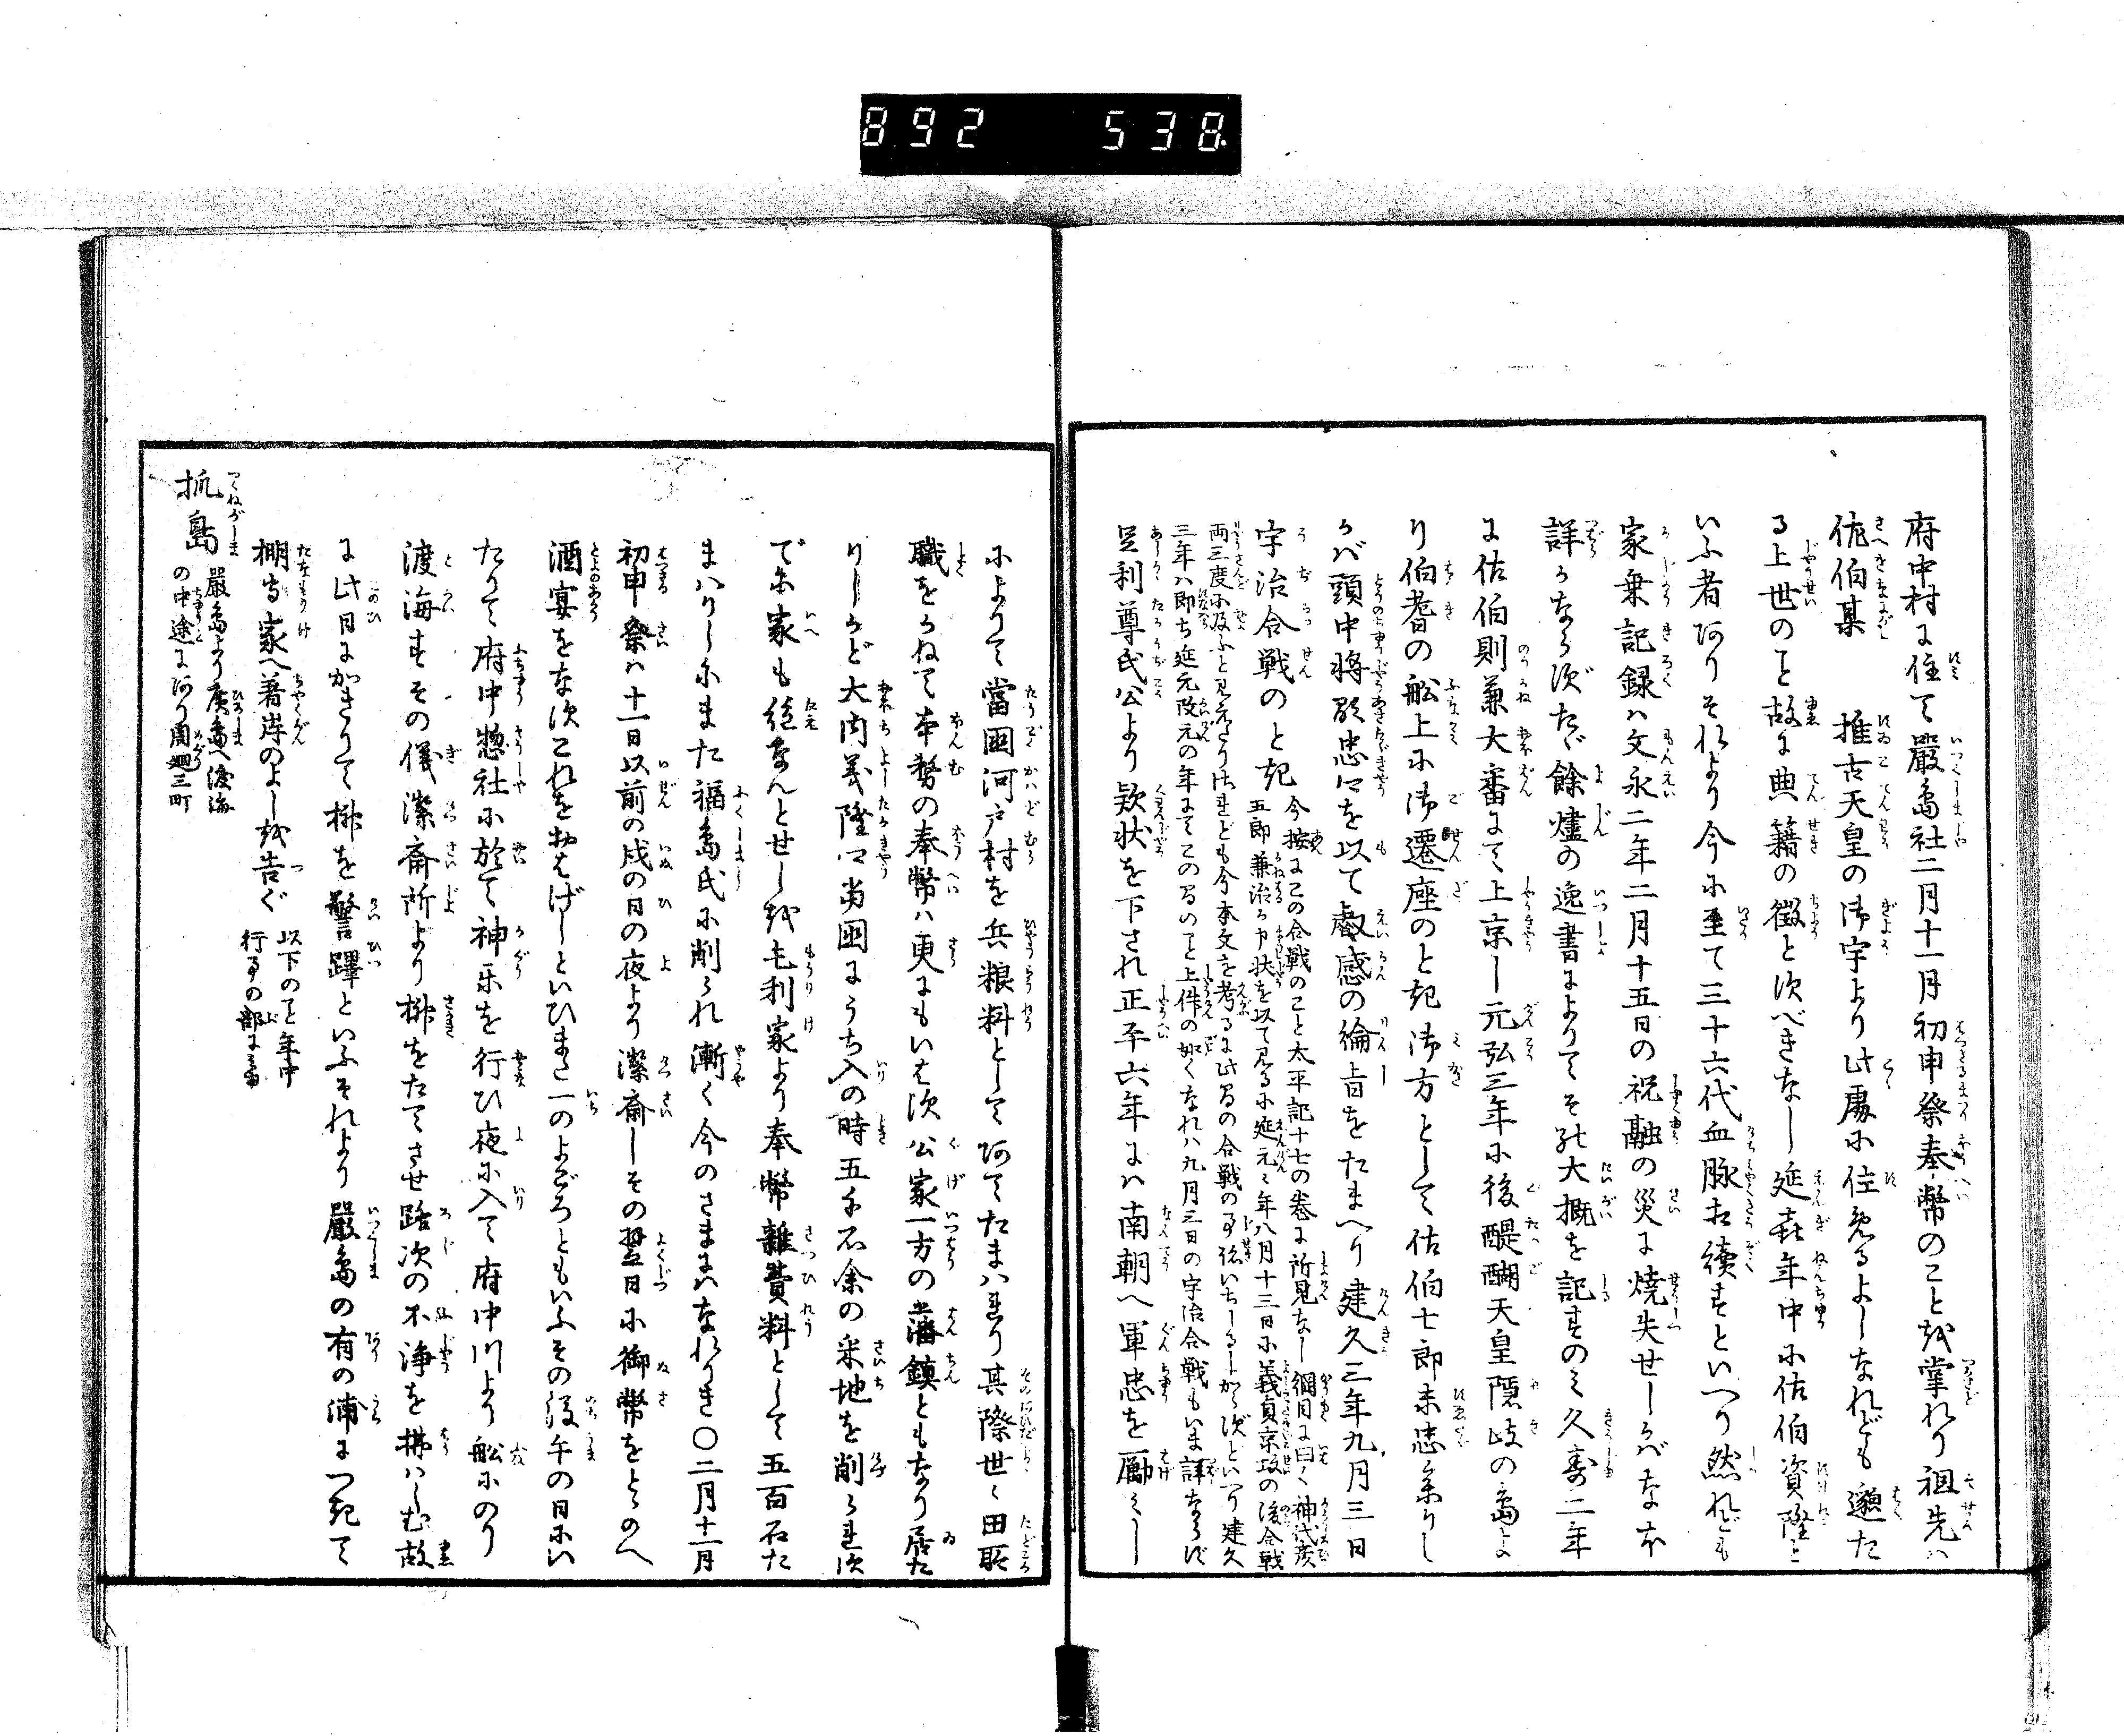 892 538
府中村に住て嚴島社二月十一月初申祭奉幣のことを掌れり祖先ハ
佐伯某 推古天皇の御宇より此處に住めるよしなれども邈た
る上世のこと故に典籍の徴とすべきなし延喜年中に佐伯資隆と
いふ者ありそれより今に至て三十六代血脉相續すといへり然れども
家乗記録ハ文永二年二月十五日の祝融の災に焼失せしかバなほ
詳かならずたゞ餘燼の逸書によりてその大概を記すのミ久壽二年
に佐伯則兼大番にて上京し元弘三年に後醍醐天皇隠岐の島よ
り伯耆の船上に御遷座のとき御方として佐伯七郎末忠参りし
かバ頭中将顕忠卿を以て叡感の綸旨をたまへり建久三年九月三日
宇治合戦のとき
今按にこの合戦のこと太平記十七の巻に所見なし綱目に曰く神代彦
五郎兼治が申状を以て見るに延元々年八月十三日に義貞京攻の後合戦
両三度に及ふと見えたり然れども今本文を考るに此間の合戦の事跡いちしるしからずといへり建久
三年ハ即ち延元改元の年にてこの間のこと上件の如くなれハ九月三日の宇治合戦もいま詳ならず
足利尊氏公より欵状を下され正平六年にハ南朝へ軍忠を勵ミし
によりて當國河戸村を兵粮料としてあてたまハれり其際世々田所
職をかねて本勢の奉幣ハ更にもいはず公家一方の藩鎮ともなり居た
りしかど大内義隆卿当国にうち入の時五千石余の采地を削られす
でに家も絶なんとせしを毛利家より奉幣雜費料として五百石た
まハりしにまた福島氏に削られ漸く今のさまにハなれりき〇二月十一月
初申祭ハ十一日以前の戌の日の夜より潔齋しその翌日に御幣をとゝのへ
酒宴をなすこれをおはけしといひまた一のよごろともいふその後午の日にい
たりて府中惣社に於て神楽を行ひ夜に入て府中川より船にのり
渡海すその儀潔齋所より榊をたてさせ路次の不浄を拂ハしむ故
に此日にかきりて榊を警蹕といふそれより嚴島の有の浦につきて
棚守家へ著岸のよしを告ぐ
以下のこと年中
行事の部に委
抓島
嚴島より廣島へ渡海
の中途にあり周廻三町